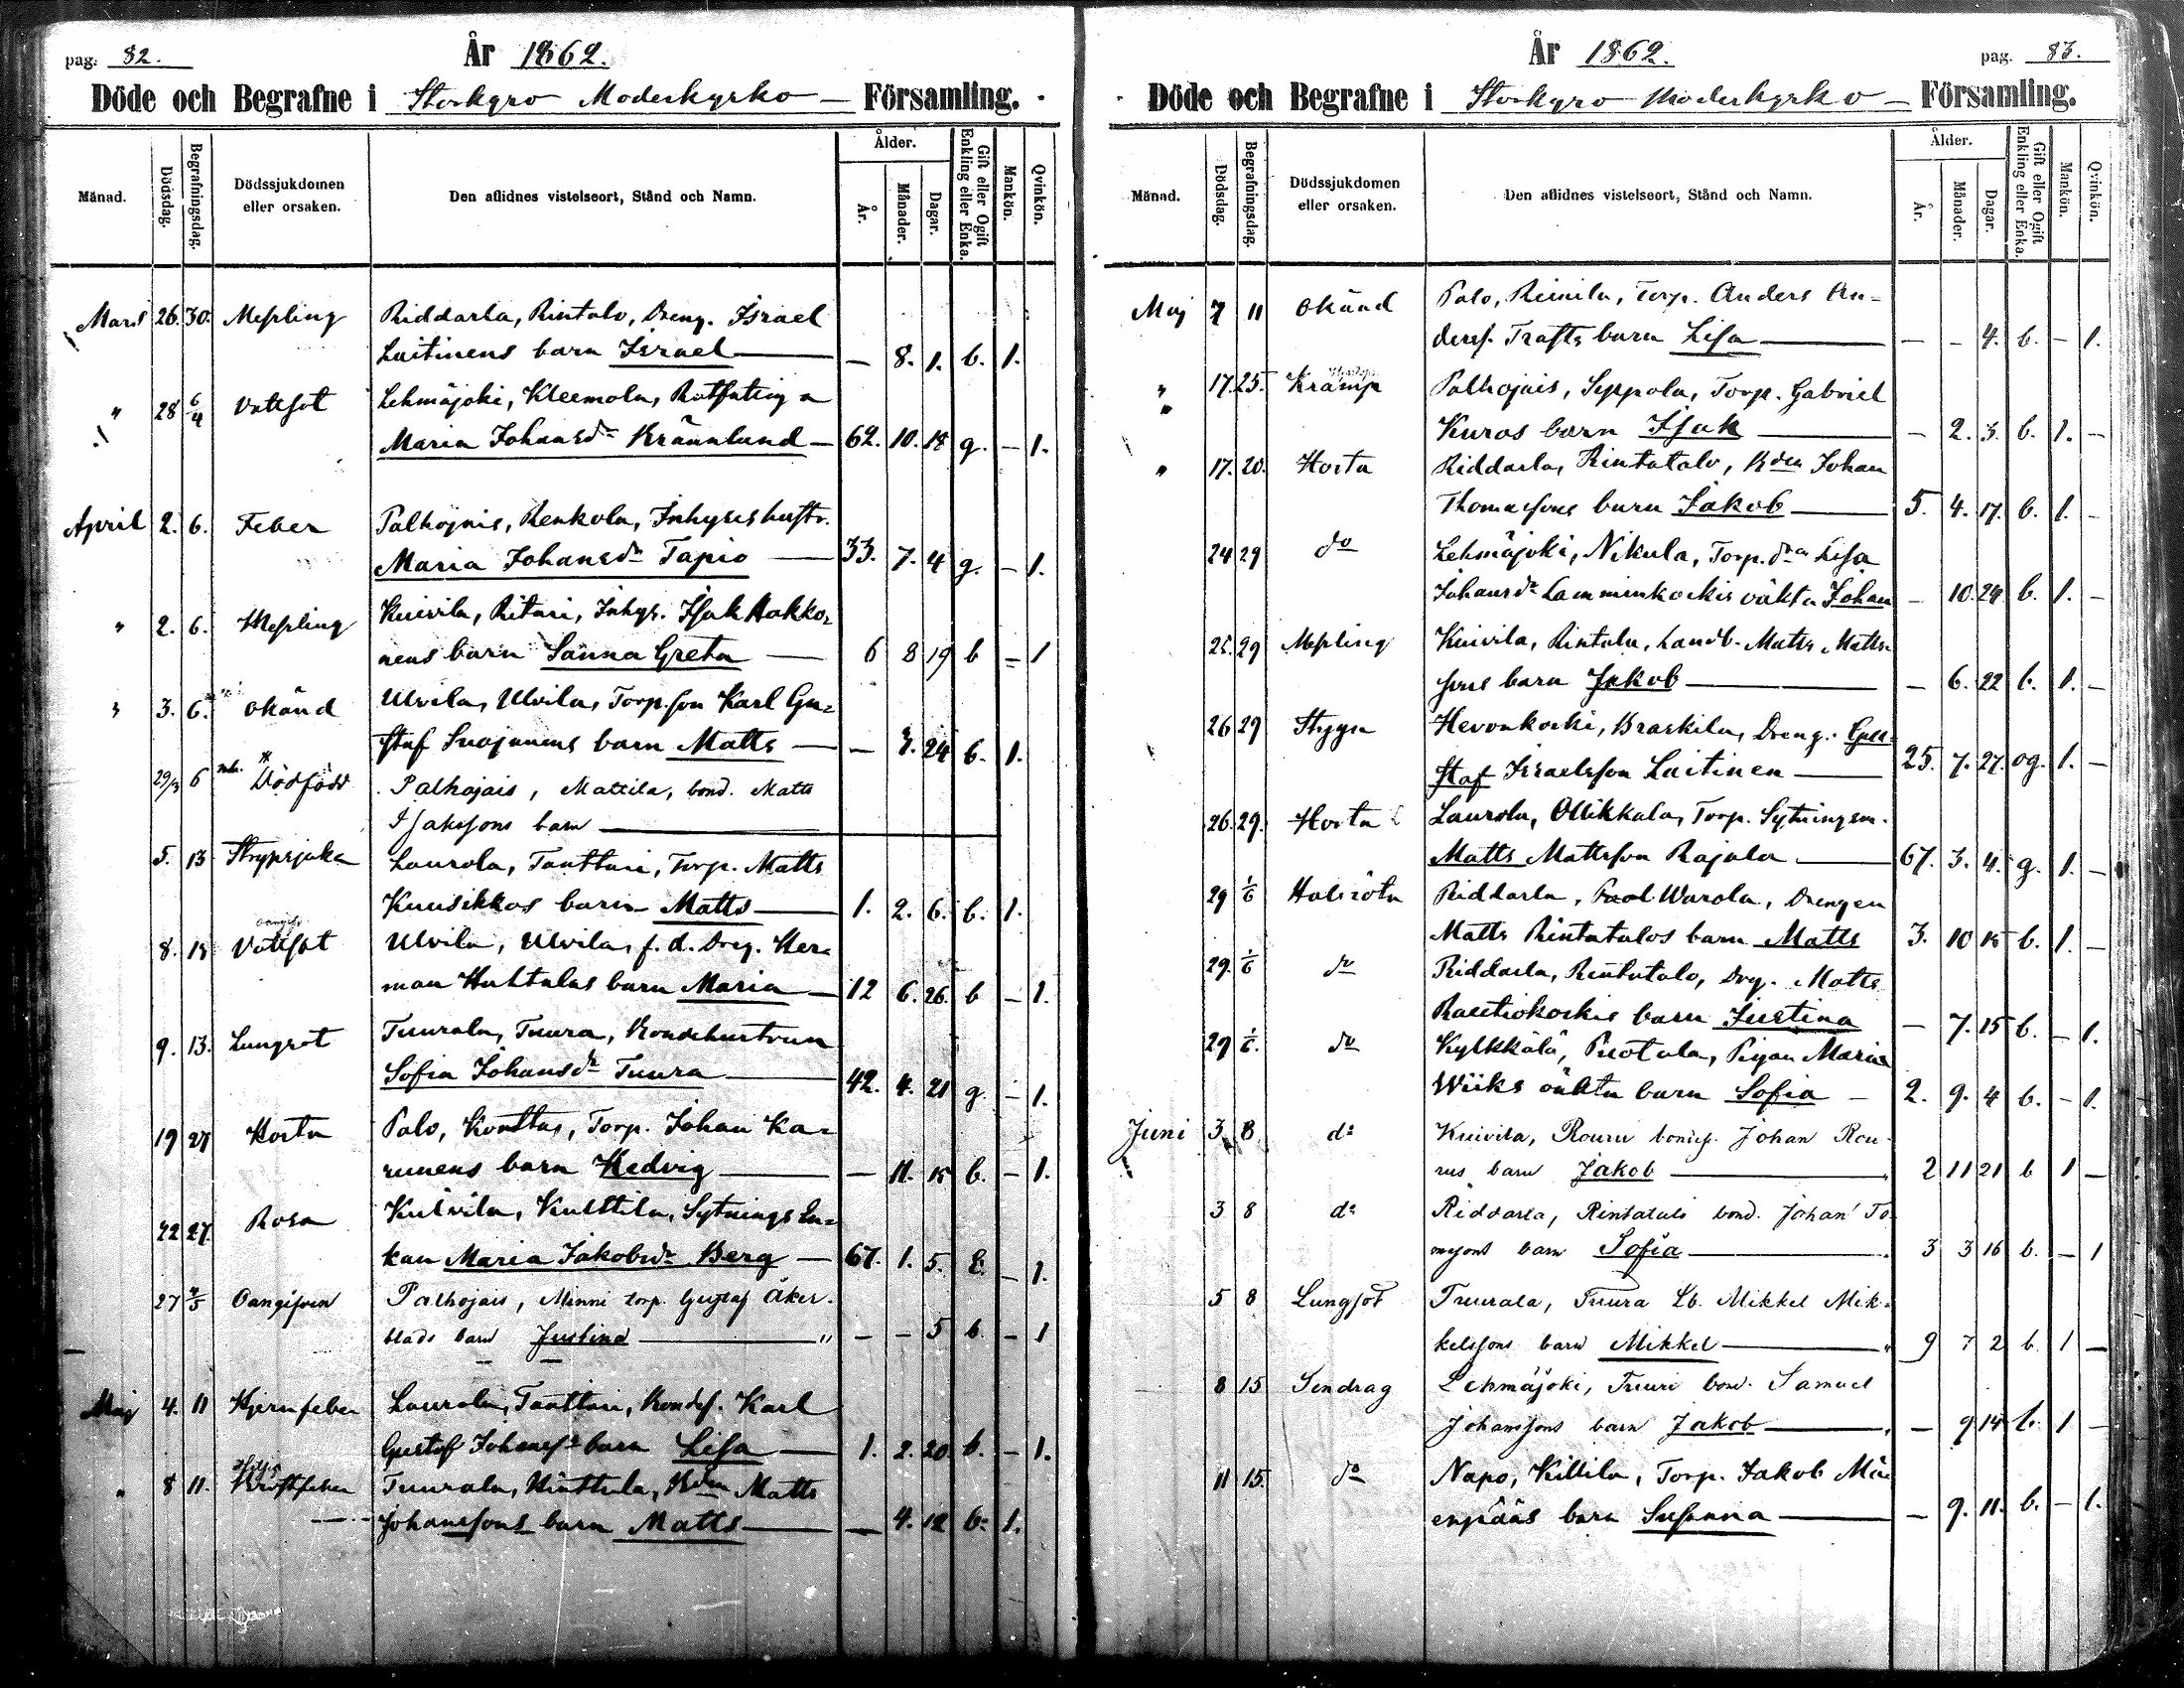 pag. 82.
År 1862.
Döde och Begrafne i Storkyro Moderkyrko Församling.
Månad.
Dödsdag.
Begrafningsdag.
Dödssjukdomen eller orsaken.
Den aflidnes vistelseort, Stånd och Namn.
Ålder.
År.
Månader.
Dagar.
Gift eller Ogift Enkling eller Enka.
Mankön.
Qvinkön.
Mars 26. 30. Messling Riddarla, Rintalo, Dreng. Israel
Laitinens barn Israel — 8. 1. b. 1.
" 28 6/4 Vattsot Lehmäjoki, Kleemola,
Maria Johansdr Krännlund 62. 10. 18 g. — 1.
April 2. 6. Feber Palhojais, Renkola, Inhyses hustr.
Maria Johansdr Tapio 33. 7. 4 g. — 1.
" 2. 6. Messling Kuivila, Ritari, Inhys. Isak Hokko-
nens barn Sanna Greta 6 8 19 b — 1
" 3. 6. okänd Ulvila, Ulvila, Torp.son Karl Gu-
staf Suojanens barn Matts — 3. 24 b. 1.
29/3 6 Dödfödd Palhojais, Mattila, bond. Matts
Isakssons barn
5. 13 Strypsjuka Laurola, Tanttari, Torp. Matts
Kuusikkos barn Matts 1. 2. 6. b. 1.
8. 13 Vattsot Ulvila, Ulvila, f. d. Drg. Her-
man Huhtalas barn Maria 12 6. 26. b — 1.
9. 13. Lungsot Tuurala, Tuura, Bondehustrun
Sofia Johansdr Tuura 42. 4. 21 g — 1.
19 27 Hosta Palo, Konttas, Torp. Johan Ka-
runens barn Hedvig — 11. 15 b. — 1.
22 27. Rosen Kuivila, Kulttila, Sytnings En-
kan Maria Jakobsdr Berg 67. 1. 5. E. — 1.
27 4/5 Oangifven Palhojais, Minni torp. Gustaf Åker-
blads barn Justina " — — 5 b. — 1
Maj 4. 11 Hjernfeber Laurola, Tanttari, Bondes. Karl
Gustaf Johanss. barn Lisa 1. 2. 20 b. — 1.
" 8 11. Bröstfeber Tuurala, Kinttula, Bden Matts
Johanssons barn Matts — 4. 12 b. 1.
År 1862.
pag. 83.
Döde och Begrafne i Storkyro Moderkyrko Församling.
Månad.
Dödsdag.
Begrafningsdag.
Dödssjukdomen eller orsaken.
Den aflidnes vistelseort, Stånd och Namn.
Ålder.
År.
Månader.
Dagar.
Gift eller Ogift Enkling eller Enka.
Mankön.
Qvinkön.
Maj 7 11 okänd Palo, Reinila, Torp. Anders An-
derss. Trasts barn Lisa — — 4. b. — 1.
" 17. 25. Kramp Palhojais, Seppola, Torp. Gabriel
Kuros barn Isak — 2. 3. b. 1. —
" 17. 20. Hosta Riddarla, Rintatalo, Bden Johan
Thomassons barn Jakob 5. 4. 17. b. 1. —
24 29 do Lehmäjoki, Nikula, Torp.dra Lisa
Johansdr Lamminkoskis oäkta Johan — 10. 24. b. 1. —
25. 29 Messling Kuivila, Rintala, Landb. Matts Matts-
sons barn Jakob — 6. 22 b. 1. —
26 29 Stygn Hevonkoski, Braskila, Dreng. Gu-
staf Israelsson Laitinen 25. 7. 27. og. 1. —
26. 29. Hosta Laurola, Ollikkala, Torp. Sytningsm.
Matts Mattsson Rajala 67. 3. 4. g. 1. —
29 1/6 Halsröta Riddarla, Warola, Drengen
Matts Rintatalos barn Matts 3. 10 15 b. 1. —
29. 1/6 do Riddarla, Rintatalo, Drg. Matts
Rautiokoskis barn Justina — 7. 15 b. — 1.
29 1/6. do Kylkkälä, Puotala, Pigan Maria
Wiiks oäkta barn Sofia 2. 9. 4 b. — 1.
Juni 3 8 do Kuivila, Rouru bondes. Johan Rou-
rus barn Jakob 2 11 21 b 1 —
3 8 do Riddarla, Rintatalo bond. Johan To-
massons barn Sofia 3 3 16 b. — 1
5 8 Lungsot Tuurala, Tuura Lb. Mikkel Mik-
kelssons barn Mikkel 9 7 2 b. 1 —
8 15 Sendrag Lehmäjoki, Tuuri bond. Samuel
Johanssons barn Jakob — 9 14 b. 1 —
11 15. do Napo, Killila, Torp. Jakob Mä-
enpääs barn Susanna — 9. 11. b. — 1.